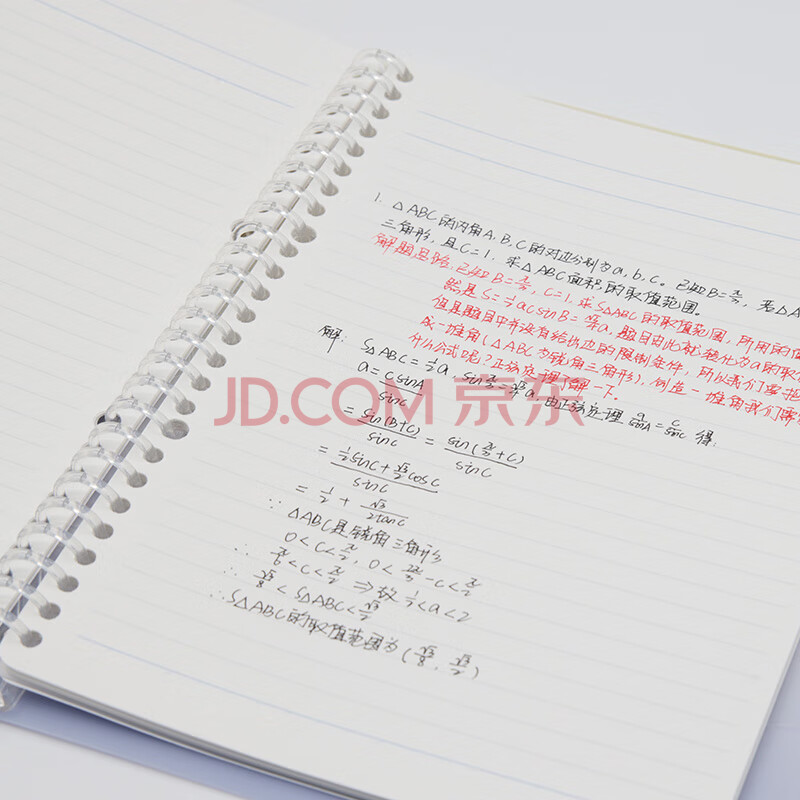 1. △ABC的内角A,B,C的对边分别为a,b,c。已知B=π/3,若△A
三角形,且C=1,求△ABC面积的取值范围。
解题思路:已知B=π/3,C=1,求S△ABC的取值范围,所用的
S=½acsinB=√3/4a,题目由此就转化为a的取
但是题目中并没有给出边的限制条件,所以我们需把
成一堆角(△ABC为锐角三角形),创造一堆角我们需
什么公式呢?正弦定理了解一下。
解:S△ABC=½a·sinπ/3=√3/4a,由正弦定理a/sinA=c/sinC得:
a=csinA/sinC
=sin(B+C)/sinC=sin(π/3+C)/sinC
=(½sinC+√3/2cosC)/sinC
=1/2+√3/2tanC
∵△ABC是锐角三角形
∴0<C<π/2,0<2π/3-C<π/2
∴π/6<C<π/2⇒故½<a<2
√3/8<S△ABC<√3/2
∴S△ABC的取值范围为(√3/8,√3/2)
JD.COM 京东